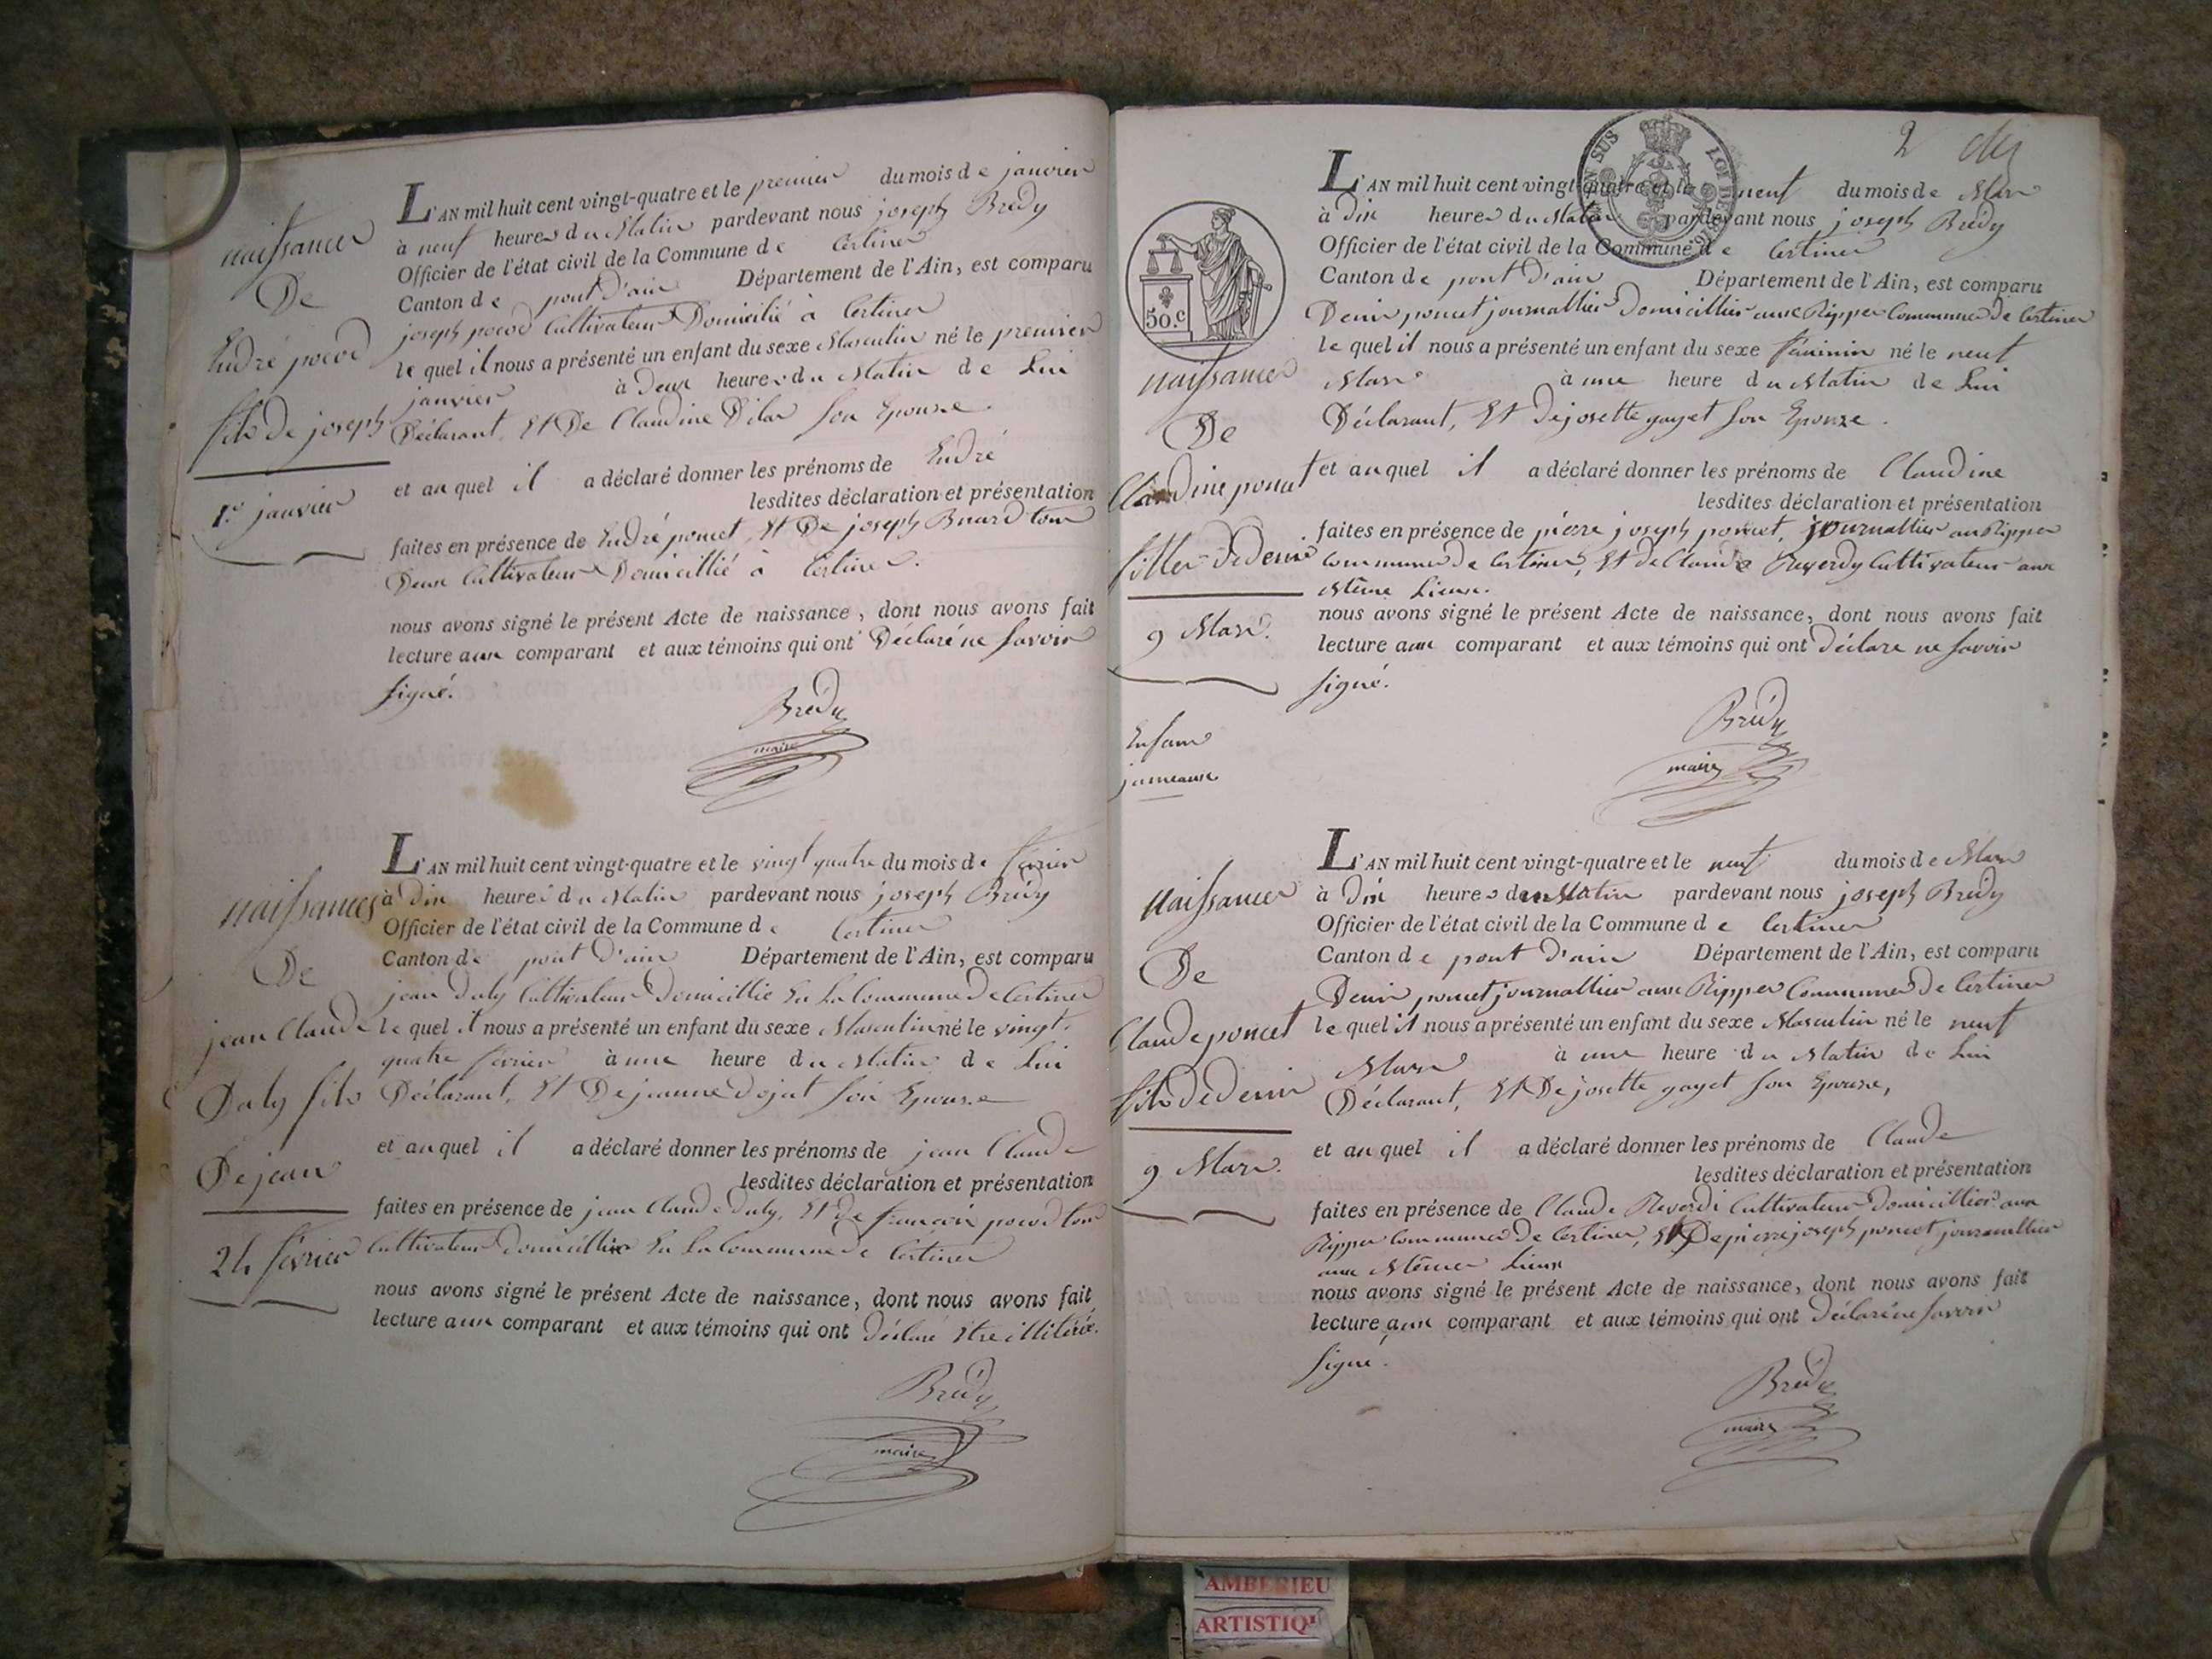 naissance
De
André pocod
fils de joseph
1er janvier
L'AN mil huit cent vingt-quatre et le premier du mois de janvier
à neuf heures du Matin pardevant nous joseph Bredy
Officier de l'état civil de la Commune de Certines
Canton de pont d'ain Département de l'Ain, est comparu
joseph pocod Cultivateur Domicilié à Certines
le quel il nous a présenté un enfant du sexe Masculin né le premier
janvier à Deux heures du Matin de Lui
Déclarant, Et De Claudine Dilas son Epouse.
et au quel il a déclaré donner les prénoms de André
lesdites déclaration et présentation
faites en présence de André poncet, Et De joseph Buard tous
Deux Cultivateurs Domicillié à Certines.
nous avons signé le présent Acte de naissance, dont nous avons fait
lecture aux comparant et aux témoins qui ont Déclaré ne savoir
signé.
Brédy
maire
naissances
De
jean Claude
Daly fils
De jean
24 février
L'AN mil huit cent vingt-quatre et le vingt quatre du mois de février
à Dix heures du Matin pardevant nous joseph Brédy
Officier de l'état civil de la Commune de Certines
Canton de pont d'ain Département de l'Ain, est comparu
jean Daly Cultivateur Domicillié En La Commune De Certines
le quel il nous a présenté un enfant du sexe Masculin né le vingt-
quatre février à une heure du Matin de Lui
Déclarant, Et De jeanne Dojat son Epouse
et au quel il a déclaré donner les prénoms de jean Claude
lesdites déclaration et présentation
faites en présence de jean Claude Daly, Et de françois pocod tous
Cultivateurs domicilliés En La Commune de Certines
nous avons signé le présent Acte de naissance, dont nous avons fait
lecture aux comparant et aux témoins qui ont déclaré Etre illitérés.
Brédy
maire
2
50.c
naissance
De
Claudine poncet
fille De denis
9 Mars.
Enfans
jumeaux
L'AN mil huit cent vingt-quatre et le neuf du mois de Mars
à dix heures du Matin pardevant nous joseph Brédy
Officier de l'état civil de la Commune de Certines
Canton de pont d'ain Département de l'Ain, est comparu
Denis poncet journallier Domicillier aux Rippes Commune De Certines
le quel il nous a présenté un enfant du sexe féminin né le neuf
Mars à une heure du Matin de Lui
Déclarant, Et De josette gayet son Epouse.
et au quel il a déclaré donner les prénoms de Claudine
lesdites déclaration et présentation
faites en présence de pierre joseph poncet, journallier au Rippes
Commune de Certines, Et de Claude Reverdy Cultivateur aux
Même Lieux.
nous avons signé le présent Acte de naissance, dont nous avons fait
lecture aux comparant et aux témoins qui ont déclare ne savoir
signé.
Brédy
maire
naissance
De
Claude poncet
fils De denis
9 Mars.
L'AN mil huit cent vingt-quatre et le neuf du mois de Mars
à dix heures du Matin pardevant nous joseph Bredy
Officier de l'état civil de la Commune de Certines
Canton de pont d'ain Département de l'Ain, est comparu
Denis poncet journallier aux Rippes Commune De Certines
le quel il nous a présenté un enfant du sexe Masculin né le neuf
Mars à une heure du Matin de Lui
Déclarant, Et De josette gayet son Epouse,
et au quel il a déclaré donner les prénoms de Claude
lesdites déclaration et présentation
faites en présence de Claude Reverdi Cultivateur Domicillier aux
Rippes Commune De Certines, Et De pierre joseph poncet journallier
aux Mêmes Lieux
nous avons signé le présent Acte de naissance, dont nous avons fait
lecture aux comparant et aux témoins qui ont Déclaré ne savoir
signé.
Brédy
maire
AMBERIEU
ARTISTIQ